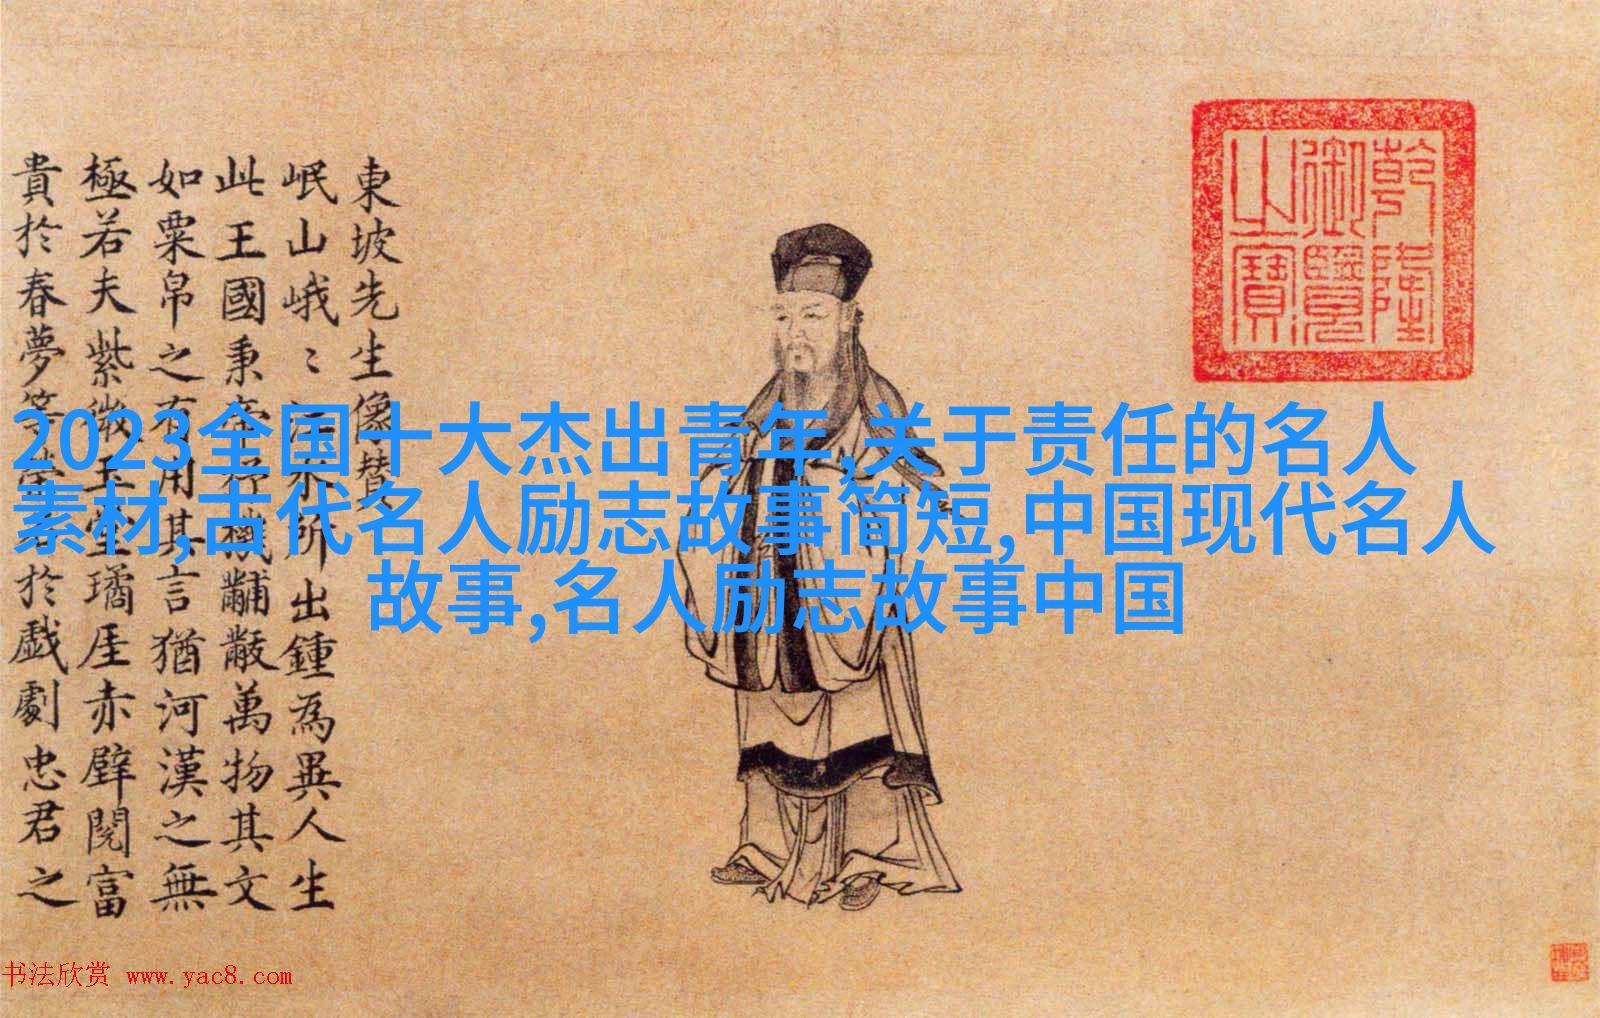 東坡先生像贊
岷山峨〻江水所出鍾為異人生
此王國秉帝杼機黼黻萬物其文
如粟帛之有用其言猶河漢之無
極若夫紫微玉堂璚厓赤壁閱富
貴於春夢等於戲劇忠君之
乾隆
御覽
之寶
2023全国十大杰出青年,关于责任的名人
素材,古代名人励志故事简短,中国现代名人
故事,名人励志故事中国
书法欣赏 www.yac8.com